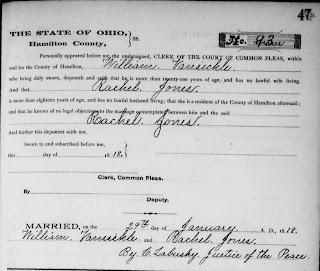 47
THE STATE OF OHIO,
Hamilton County, } SS.
Personally appeared before me, the undersigned, CLERK OF THE COURT OF COMMON PLEAS, within
and for the County of Hamilton, William Vansickle
who being duly sworn, deposeth and saith that he is more than twenty-one years of age, and has no lawful wife living.
And that Rachel Jones
is more than eighteen years of age, and has no lawful husband living; that she is a resident of the County of Hamilton aforesaid;
and that he knows of no legal objection to the marriage contemplated between him and the said
Rachel Jones.
And further this deponent saith not.
Sworn to and subscribed before me,
this day of 1818.
Clerk, Common Pleas.
By
Deputy.
MARRIED, on the 29th day of January A. D., 1818.
William Vansickle and Rachel Jones.
By, C. Labusky, Justice of the Peace.